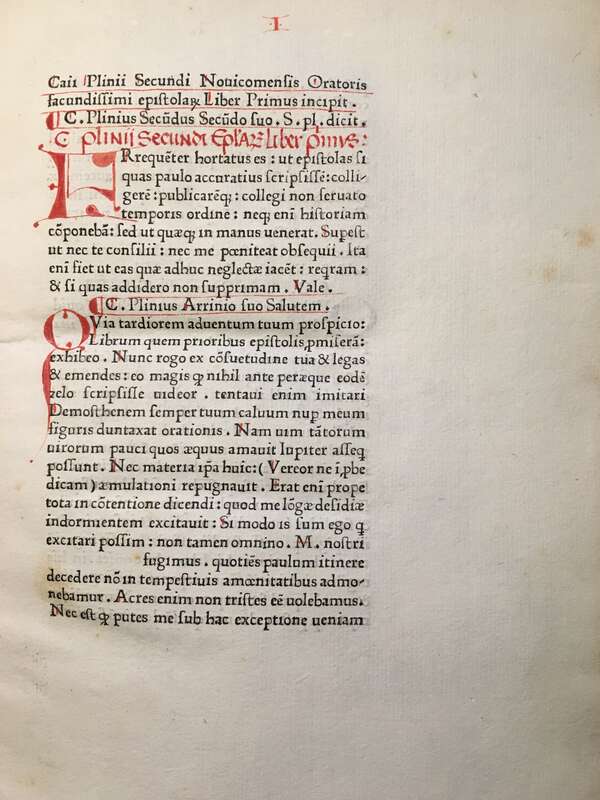 I
Caii Plinii Secundi Nouicomensis Oratoris
facundissimi epistolaꝝ Liber Primus incipit .
C. Plinius Secūdus Secūdo suo . S. pl. dicit.
C plinii Secundi Ep̄laꝝ liber p̄mus:
FRrequēter hortatus es : ut epistolas si
quas paulo accuratius scripsissē: colli-
gerē : publicarēqꝫ : collegi non seruato
temporis ordine : neqꝫ enī historiam
cōponebā: sed ut quæqꝫ in manus uenerat. Supest
ut nec te consilii : nec me pœniteat obsequii. Ita
enī fiet ut eas quæ adhuc neglectæ iacēt : reqram :
& si quas addidero non supprimam . Vale .
C. Plinius Arrinio suo Salutem .
QVia tardiorem aduentum tuum prospicio:
Librum quem prioribus epistolis ꝓmiserā:
exhibeo . Nunc rogo ex cōsuetudine tua & legas
& emendes : eo magis ꝙ nihil ante peræque eodē
zelo scripsisse uideor . tentaui enim imitari
Demosthenem semper tuum caluum nuꝑ meum
figuris duntaxat orationis . Nam uim tātorum
uirorum pauci quos æquus amauit Iupiter asseꝗ
possunt . Nec materia ip̄a huic: ( Vereor ne īꝓbe
dicam ) æmulationi repugnauit . Erat enī prope
tota in cōtentione dicendi : quod me lōgæ desidiæ
indormientem excitauit : Si modo is sum ego ꝗ
excitari possim : non tamen omnino . M. nostri
fugimus . quotiēs paulum itinere
decedere nō in tempestiuis amœnitatibus admo-
nebamur . Acres enim non tristes eē uolebamus.
Nec est ꝙ putes me sub hac exceptione ueniam